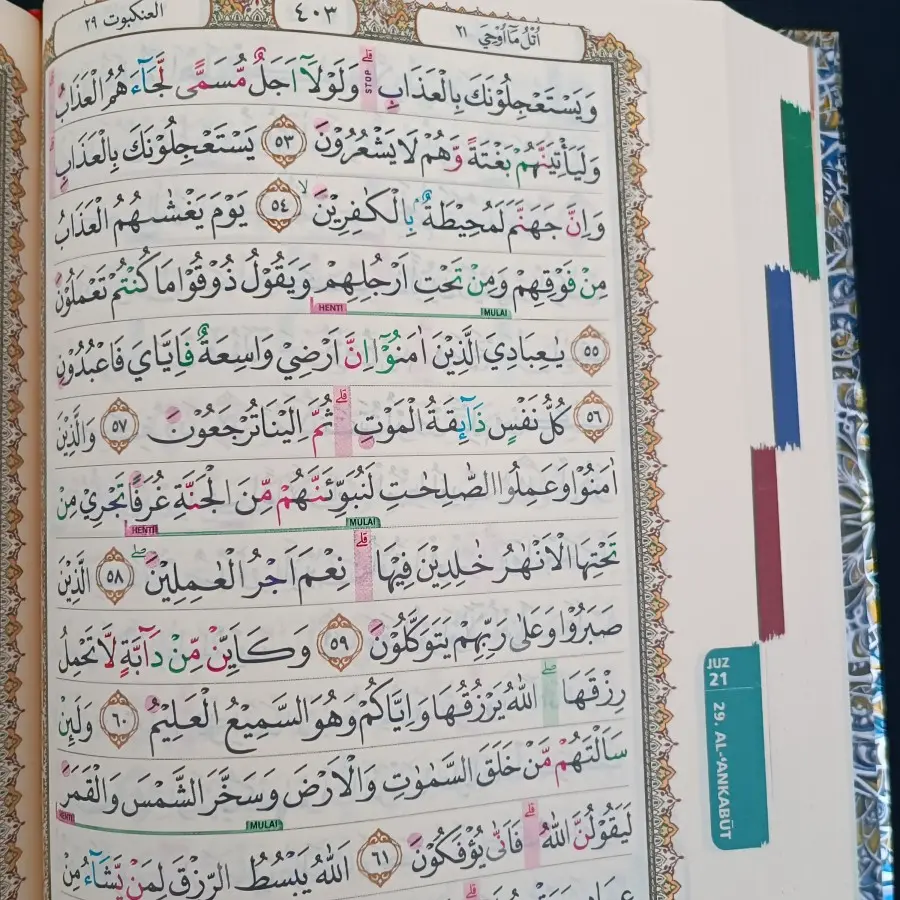 العنكبوت ٢٩
٤٠٣
اُتْلُ مَآ اُوْحِيَ ٢١
وَيَسْتَعْجِلُوْنَكَ بِالْعَذَابِۗ وَلَوْلَآ اَجَلٌ مُّسَمًّى لَّجَاۤءَهُمُ الْعَذَابُۗ
قلى STOP
وَلَيَأْتِيَنَّهُمْ بَغْتَةً وَّهُمْ لَا يَشْعُرُوْنَ ٥٣ يَسْتَعْجِلُوْنَكَ بِالْعَذَابِۗ
وَاِنَّ جَهَنَّمَ لَمُحِيْطَةٌ ۢ بِالْكٰفِرِيْنَۙ ٥٤ يَوْمَ يَغْشٰىهُمُ الْعَذَابُ
مِنْ فَوْقِهِمْ وَمِنْ تَحْتِ اَرْجُلِهِمْ وَيَقُوْلُ ذُوْقُوْا مَا كُنْتُمْ تَعْمَلُوْنَ
HENTI MULAI
٥٥ يٰعِبَادِيَ الَّذِيْنَ اٰمَنُوْٓا اِنَّ اَرْضِيْ وَاسِعَةٌ فَاِيَّايَ فَاعْبُدُوْنِ
٥٦ كُلُّ نَفْسٍ ذَاۤىِٕقَةُ الْمَوْتِۗ ثُمَّ اِلَيْنَا تُرْجَعُوْنَ ٥٧ وَالَّذِيْنَ
اٰمَنُوْا وَعَمِلُوا الصّٰلِحٰتِ لَنُبَوِّئَنَّهُمْ مِّنَ الْجَنَّةِ غُرَفًا تَجْرِيْ مِنْ
HENTI MULAI
تَحْتِهَا الْاَنْهٰرُ خٰلِدِيْنَ فِيْهَاۗ نِعْمَ اَجْرُ الْعٰمِلِيْنَۖ ٥٨ الَّذِيْنَ
صَبَرُوْا وَعَلٰى رَبِّهِمْ يَتَوَكَّلُوْنَ ٥٩ وَكَاَيِّنْ مِّنْ دَاۤبَّةٍ لَّا تَحْمِلُ
رِزْقَهَاۖ اللّٰهُ يَرْزُقُهَا وَاِيَّاكُمْ وَهُوَ السَّمِيْعُ الْعَلِيْمُ ٦٠ وَلَىِٕنْ
سَاَلْتَهُمْ مَّنْ خَلَقَ السَّمٰوٰتِ وَالْاَرْضَ وَسَخَّرَ الشَّمْسَ وَالْقَمَرَ
HENTI MULAI
لَيَقُوْلُنَّ اللّٰهُۗ فَاَنّٰى يُؤْفَكُوْنَ ٦١ اَللّٰهُ يَبْسُطُ الرِّزْقَ لِمَنْ يَّشَاۤءُ مِنْ
JUZ
21
29. AL-‘ANKABŪT